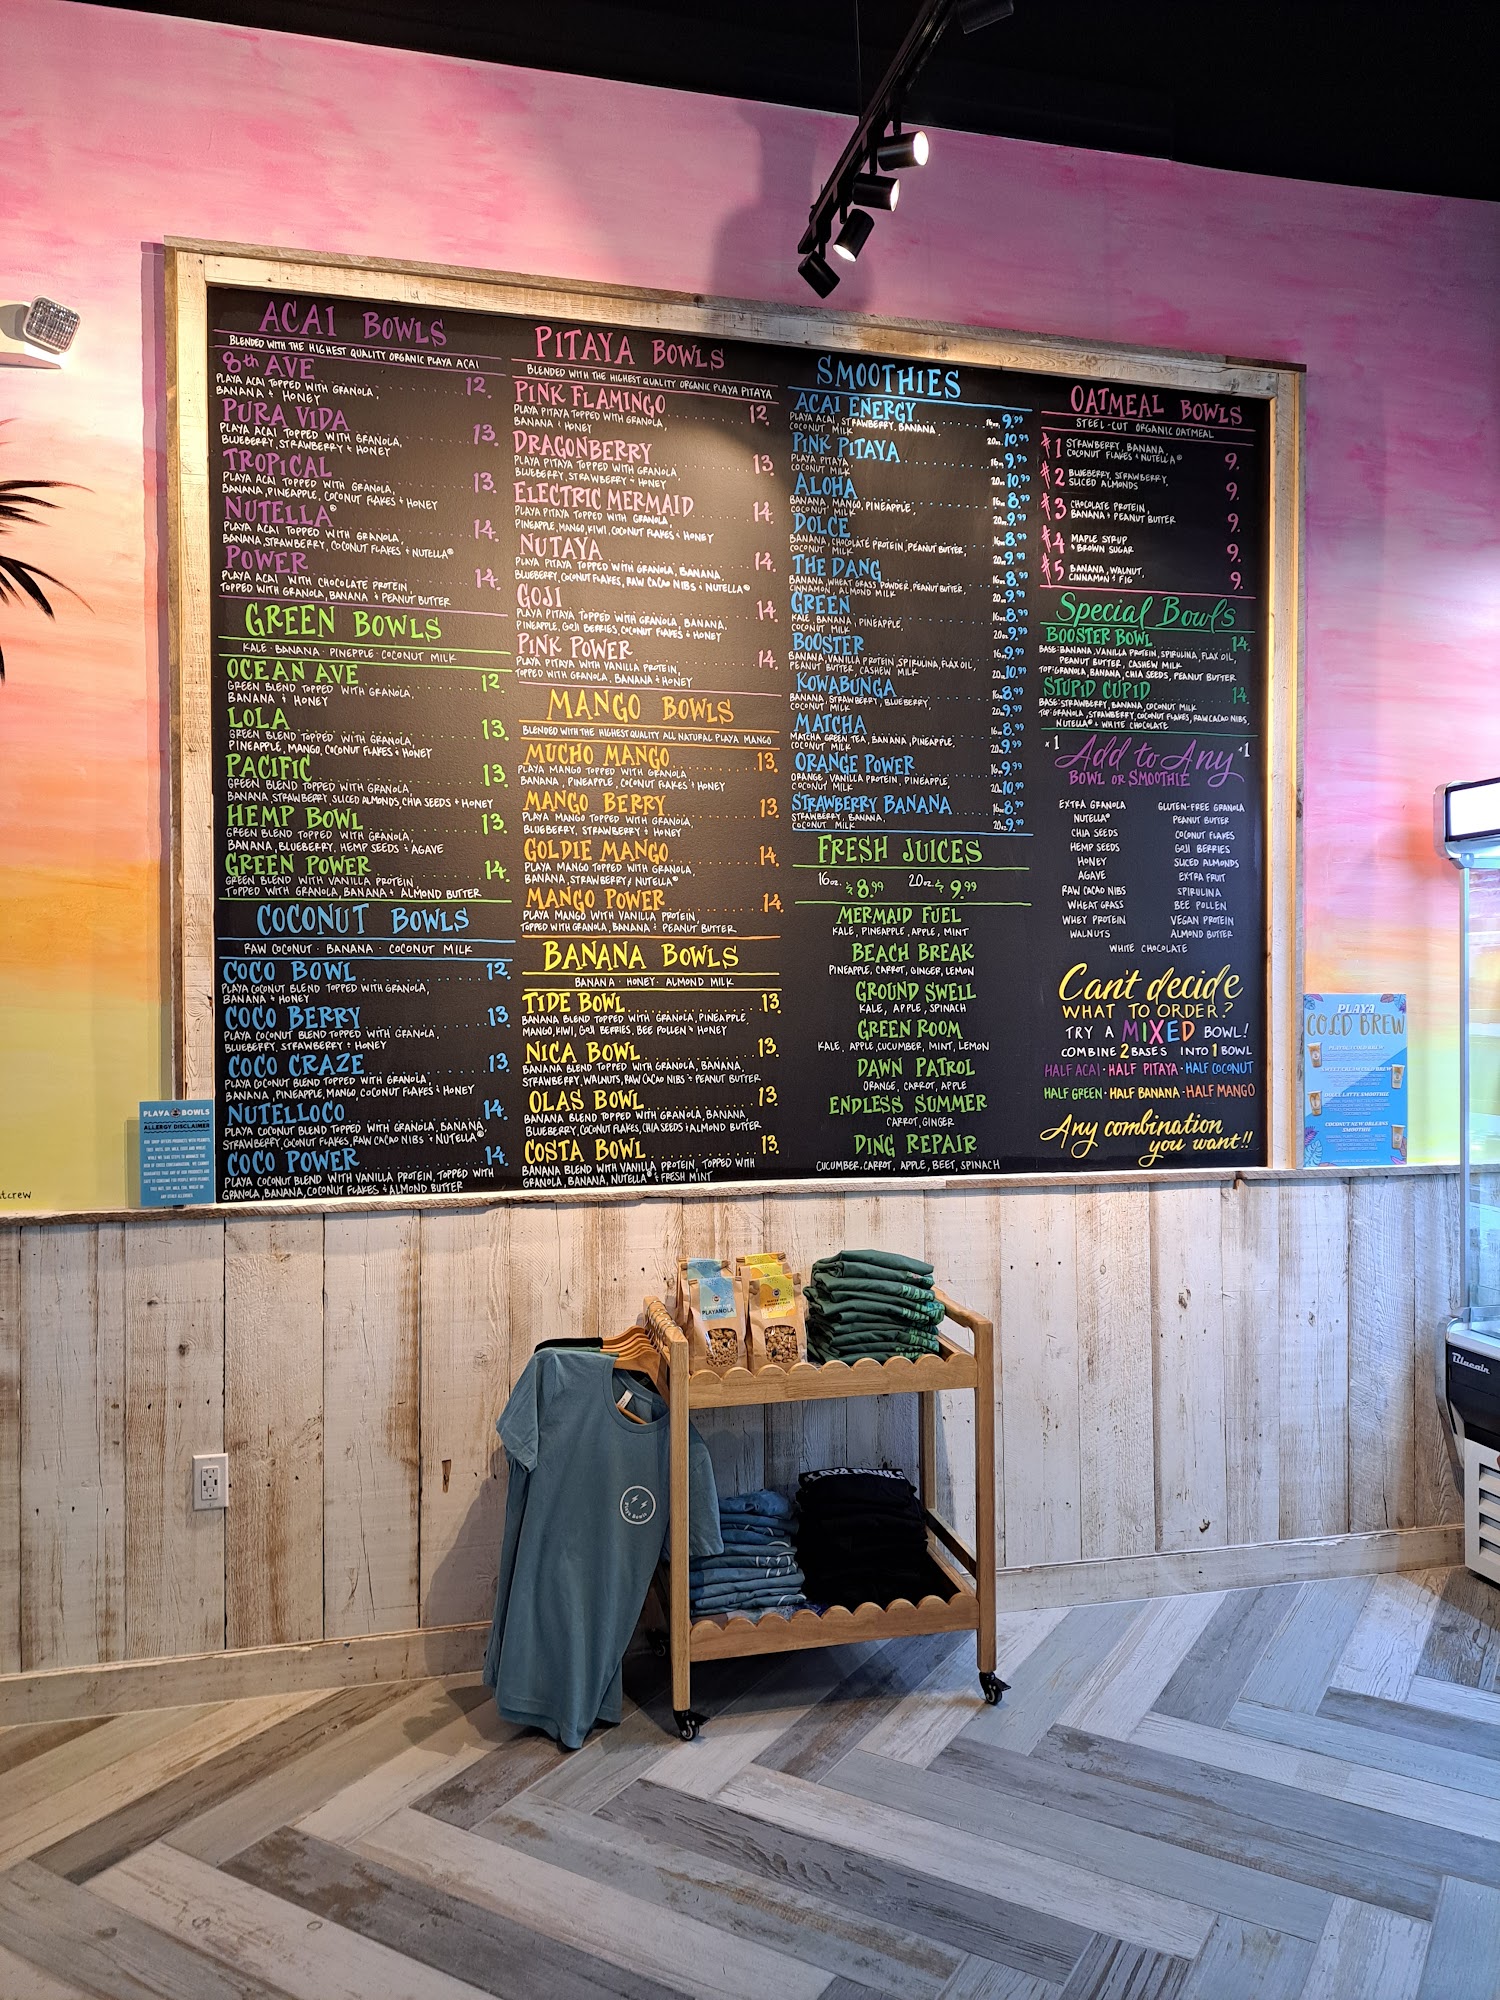 ACAI BOWLS
BLENDED WITH THE HIGHEST QUALITY ORGANIC PLAYA ACAI
8th AVE 12.
PLAYA ACAI TOPPED WITH GRANOLA,
BANANA + HONEY
PURA VIDA 13.
PLAYA ACAI TOPPED WITH GRANOLA,
BLUEBERRY, STRAWBERRY + HONEY
TROPICAL 13.
PLAYA ACAI TOPPED WITH GRANOLA,
BANANA, PINEAPPLE, COCONUT FLAKES + HONEY
NUTELLA® 14.
PLAYA ACAI TOPPED WITH GRANOLA,
BANANA, STRAWBERRY, COCONUT FLAKES + NUTELLA®
POWER 14.
PLAYA ACAI WITH CHOCOLATE PROTEIN,
TOPPED WITH GRANOLA, BANANA + PEANUT BUTTER
GREEN BOWLS
KALE · BANANA · PINEPPLE · COCONUT MILK
OCEAN AVE 12.
GREEN BLEND TOPPED WITH GRANOLA,
BANANA + HONEY
LOLA 13.
GREEN BLEND TOPPED WITH GRANOLA,
PINEAPPLE, MANGO, COCONUT FLAKES + HONEY
PACIFIC 13.
GREEN BLEND TOPPED WITH GRANOLA,
BANANA, STRAWBERRY, SLICED ALMONDS, CHIA SEEDS + HONEY
HEMP BOWL 13.
GREEN BLEND TOPPED WITH GRANOLA,
BANANA, BLUEBERRY, HEMP SEEDS + AGAVE
GREEN POWER 14.
GREEN BLEND WITH VANILLA PROTEIN,
TOPPED WITH GRANOLA, BANANA + ALMOND BUTTER
COCONUT BOWLS
RAW COCONUT · BANANA · COCONUT MILK
COCO BOWL 12.
PLAYA COCONUT BLEND TOPPED WITH GRANOLA,
BANANA + HONEY
COCO BERRY 13.
PLAYA COCONUT BLEND TOPPED WITH GRANOLA,
BLUEBERRY, STRAWBERRY + HONEY
COCO CRAZE 13.
PLAYA COCONUT BLEND TOPPED WITH GRANOLA,
BANANA, PINEAPPLE, MANGO, COCONUT FLAKES + HONEY
NUTELLOCO 14.
PLAYA COCONUT BLEND TOPPED WITH GRANOLA, BANANA,
STRAWBERRY, COCONUT FLAKES, RAW CACAO NIBS + NUTELLA®
COCO POWER 14.
PLAYA COCONUT BLEND WITH VANILLA PROTEIN, TOPPED WITH
GRANOLA, BANANA, COCONUT FLAKES + ALMOND BUTTER
PITAYA BOWLS
BLENDED WITH THE HIGHEST QUALITY ORGANIC PLAYA PITAYA
PINK FLAMINGO 12.
PLAYA PITAYA TOPPED WITH GRANOLA,
BANANA + HONEY
DRAGONBERRY 13.
PLAYA PITAYA TOPPED WITH GRANOLA,
BLUEBERRY, STRAWBERRY + HONEY
ELECTRIC MERMAID 14.
PLAYA PITAYA TOPPED WITH GRANOLA,
PINEAPPLE, MANGO, KIWI, COCONUT FLAKES + HONEY
NUTAYA 14.
PLAYA PITAYA TOPPED WITH GRANOLA, BANANA,
BLUEBERRY, COCONUT FLAKES, RAW CACAO NIBS + NUTELLA®
GOJI 14.
PLAYA PITAYA TOPPED WITH GRANOLA, BANANA,
PINEAPPLE, GOJI BERRIES, COCONUT FLAKES + HONEY
PINK POWER 14.
PLAYA PITAYA WITH VANILLA PROTEIN,
TOPPED WITH GRANOLA, BANANA + HONEY
MANGO BOWLS
BLENDED WITH THE HIGHEST QUALITY ALL NATURAL PLAYA MANGO
MUCHO MANGO 13.
PLAYA MANGO TOPPED WITH GRANOLA,
BANANA, PINEAPPLE, COCONUT FLAKES + HONEY
MANGO BERRY 13.
PLAYA MANGO TOPPED WITH GRANOLA,
BLUEBERRY, STRAWBERRY + HONEY
GOLDIE MANGO 14.
PLAYA MANGO TOPPED WITH GRANOLA,
BANANA, STRAWBERRY, NUTELLA®
MANGO POWER 14.
PLAYA MANGO WITH VANILLA PROTEIN,
TOPPED WITH GRANOLA, BANANA + PEANUT BUTTER
BANANA BOWLS
BANANA · HONEY · ALMOND MILK
TIDE BOWL 13.
BANANA BLEND TOPPED WITH GRANOLA, PINEAPPLE,
MANGO, KIWI, GOJI BERRIES, BEE POLLEN + HONEY
NICA BOWL 13.
BANANA BLEND TOPPED WITH GRANOLA, BANANA,
STRAWBERRY, WALNUTS, RAW CACAO NIBS + PEANUT BUTTER
OLAS BOWL 13.
BANANA BLEND TOPPED WITH GRANOLA, BANANA,
BLUEBERRY, COCONUT FLAKES, CHIA SEEDS + ALMOND BUTTER
COSTA BOWL 13.
BANANA BLEND WITH VANILLA PROTEIN, TOPPED WITH
GRANOLA, BANANA, NUTELLA® + FRESH MINT
SMOOTHIES
ACAI ENERGY 16oz. 9.99
PLAYA ACAI, STRAWBERRY, BANANA,
COCONUT MILK 20oz. 10.99
PINK PITAYA 16oz. 9.99
PLAYA PITAYA,
COCONUT MILK 20oz. 10.99
ALOHA 16oz. 8.99
BANANA, MANGO, PINEAPPLE,
COCONUT MILK 20oz. 9.99
DOLCE 16oz. 8.99
BANANA, CHOCOLATE PROTEIN, PEANUT BUTTER,
COCONUT MILK 20oz. 9.99
THE DANG 16oz. 8.99
BANANA, WHEAT GRASS POWDER, PEANUT BUTTER,
CINNAMON, ALMOND MILK 20oz. 9.99
GREEN 16oz. 8.99
KALE, BANANA, PINEAPPLE,
COCONUT MILK 20oz. 9.99
BOOSTER 16oz. 9.99
BANANA, VANILLA PROTEIN, SPIRULINA, FLAX OIL,
PEANUT BUTTER, CASHEW MILK 20oz. 10.99
KOWABUNGA 16oz. 8.99
BANANA, STRAWBERRY, BLUEBERRY,
COCONUT MILK 20oz. 9.99
MATCHA 16oz. 8.99
MATCHA GREEN TEA, BANANA, PINEAPPLE,
COCONUT MILK 20oz. 9.99
ORANGE POWER 16oz. 9.99
ORANGE, VANILLA PROTEIN, PINEAPPLE,
COCONUT MILK 20oz. 10.99
STRAWBERRY BANANA 16oz. 8.99
STRAWBERRY, BANANA,
COCONUT MILK 20oz. 9.99
FRESH JUICES
16oz. 8.99 20oz. 9.99
MERMAID FUEL
KALE, PINEAPPLE, APPLE, MINT
BEACH BREAK
PINEAPPLE, CARROT, GINGER, LEMON
GROUND SWELL
KALE, APPLE, SPINACH
GREEN ROOM
KALE, APPLE, CUCUMBER, MINT, LEMON
DAWN PATROL
ORANGE, CARROT, APPLE
ENDLESS SUMMER
CARROT, GINGER
DING REPAIR
CUCUMBER, CARROT, APPLE, BEET, SPINACH
OATMEAL BOWLS
STEEL-CUT ORGANIC OATMEAL
#1 STRAWBERRY, BANANA,
COCONUT FLAKES + NUTELLA® 9.
#2 BLUEBERRY, STRAWBERRY,
SLICED ALMONDS 9.
#3 CHOCOLATE PROTEIN,
BANANA + PEANUT BUTTER 9.
#4 MAPLE SYRUP
+ BROWN SUGAR 9.
#5 BANANA, WALNUT,
CINNAMON + FIG 9.
Special Bowls
BOOSTER BOWL 14.
BASE: BANANA, VANILLA PROTEIN, SPIRULINA, FLAX OIL,
PEANUT BUTTER, CASHEW MILK
TOP: GRANOLA, BANANA, CHIA SEEDS, PEANUT BUTTER
STUPID CUPID 14.
BASE: STRAWBERRY, BANANA, COCONUT MILK
TOP: GRANOLA, STRAWBERRY, COCONUT FLAKES, RAW CACAO NIBS,
NUTELLA® + WHITE CHOCOLATE
+1 Add to Any +1
BOWL OR SMOOTHIE
EXTRA GRANOLA GLUTEN-FREE GRANOLA
NUTELLA® PEANUT BUTTER
CHIA SEEDS COCONUT FLAKES
HEMP SEEDS GOJI BERRIES
HONEY SLICED ALMONDS
AGAVE EXTRA FRUIT
RAW CACAO NIBS SPIRULINA
WHEAT GRASS BEE POLLEN
WHEY PROTEIN VEGAN PROTEIN
WALNUTS ALMOND BUTTER
WHITE CHOCOLATE
Can't decide
WHAT TO ORDER?
TRY A MIXED BOWL!
COMBINE 2 BASES INTO 1 BOWL
HALF ACAI · HALF PITAYA · HALF COCONUT
HALF GREEN · HALF BANANA · HALF MANGO
Any combination
you want!!
PLAYA BOWLS
ALLERGY DISCLAIMER
PLAYA
COLD BREW
COCONUT NEW ORLEANS
SMOOTHIE
tcrew
PLAYANOLA
Playa Bowls
PLAYA BOWLS
Blueair